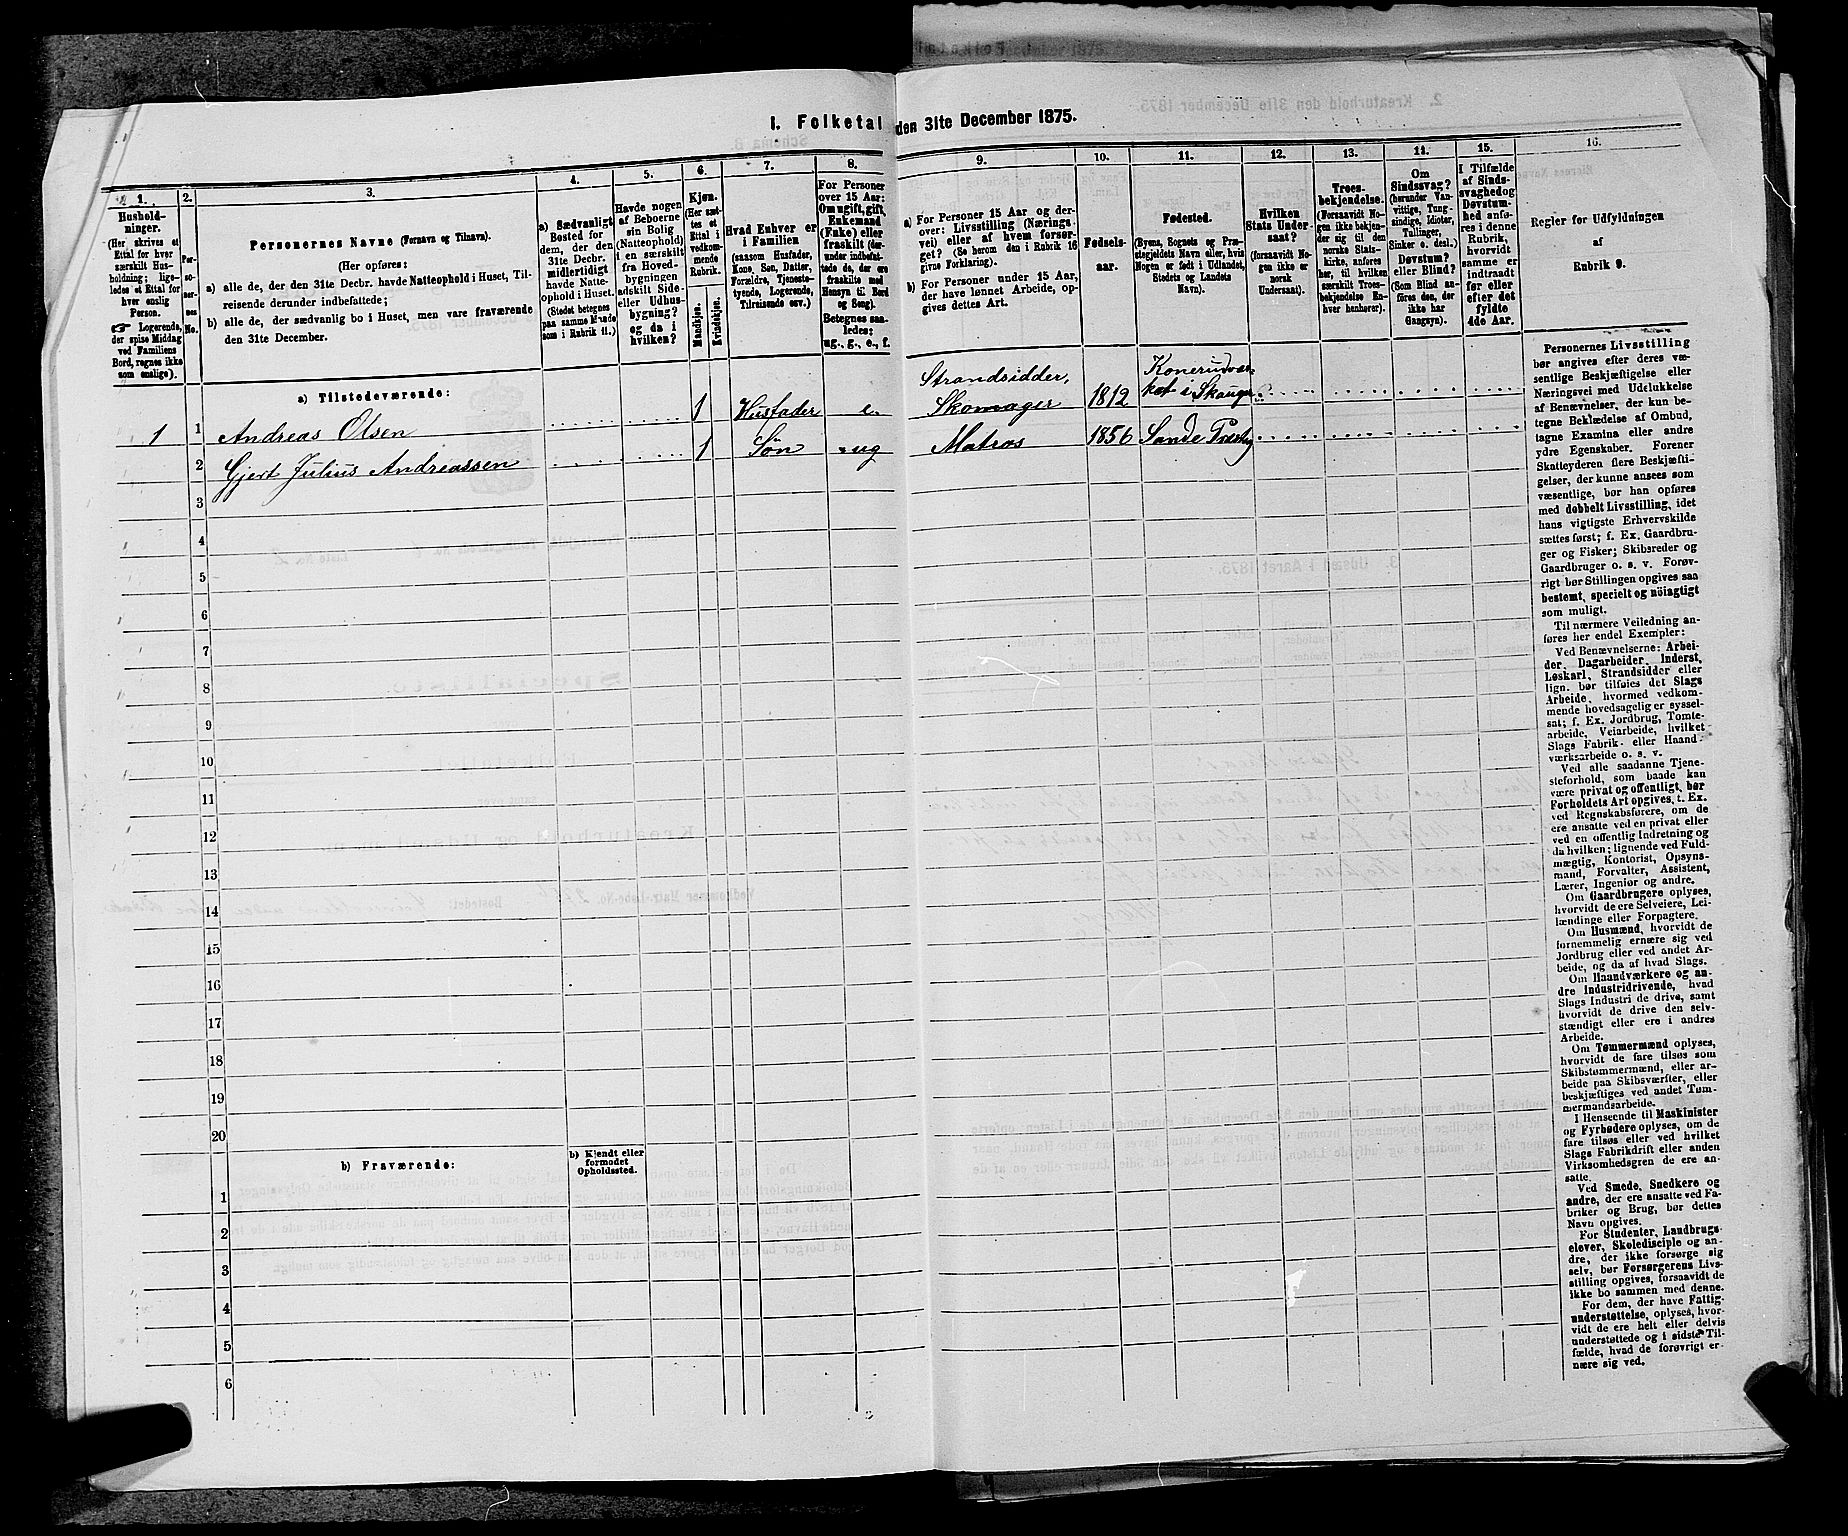 1. Folketal den 31te December 1875.
1.
2.
3.
4.
5.
6.
7.
8.
9.
10.
11.
12.
13.
14.
15.
16.
Hushold-
ninger.
(Her skrives et
Ettal for hver
særskilt Hus-
holdning; lige-
ledes et Ettal for
hver enslig
Person.
Logerende,
der spise Middag
ved Familiens
Bord, regnes ikke
som enslige).
Per-
so-
ner-
nes
No.
Personernes Navne (Fornavn og Tilnavn).
(Her opføres:
a) alle de, der den 31te Decbr. havde Natteophold i Huset, Til-
reisende derunder indbefattede;
b) alle de, der sædvanlig bo i Huset, men vare fraværende
den 31te December.
a) Sædvanligt
Bosted for
dem, der den
31te Decbr.
midlertidigt
havde Natte-
ophold i Huset.
(Stedet betegnes
paa samme Maade
som i Rubrik 11.)
Havde nogen
af Beboerne
sin Bolig
(Natteophold)
i en særskilt
fra Hoved-
bygningen
adskilt Side-
eller Udhus-
bygning?
og da i
hvilken?
Kjøn.
(Her sæt-
tes et
Ettal i
vedkom-
mende
Rubrik.
Mandkjøn.
Kvindekjøn.
Hvad Enhver er
i Familien
(saasom Husfader,
Kone, Søn, Datter,
Forældre, Tjeneste-
tyende, Logerende,
Tilreisende osv.)
For Personer
over 15 Aar:
Om ugift, gift,
Enkemand
(Enke) eller
fraskilt (der-
under indbefat-
tede de, der ere
fraskilte med
Hensyn til Bord
og Seng).
Betegnes saa-
ledes:
ug., g., e., f.
a) For Personer 15 Aar og der-
over: Livsstilling (Nærings-
vei) eller af hvem forsør-
get? (Se herom den i Rubrik 16
givne Forklaring).
b) For Personer under 15 Aar,
der have lønnet Arbeide, op-
gives dettes Art.
Fødsels-
aar.
Fødested.
(Byens, Sognets og Præ-
stegjeldets Navn eller, hvis
Nogen er født i Udlandet,
Stedets og Landets
Navn).
Hvilken
Stats Under-
saat?
(forsaavidt No-
gen ikke er
norsk
Undersaat).
Troes-
bekjendelse.
(Forsaavidt No-
gen ikke bekjen-
der sig til den
norske Stats-
kirke, anføres
her, til hvilken
særskilt Troes-
bekjendelse En-
hver henhører).
Om
Sindssvag?
(herunder Van-
vittige, Tung-
sindige, Idioter,
Tullinger,
Sinker o. desl.)
Døvstum?
eller Blind?
(Som Blind an-
føres den, der
ikke har
Gangsyn).
I Tilfælde
af Sinds-
svaghed og
Døvstum-
hed anfø-
res i denne
Rubrik,
hvorvidt
samme er
indtraadt
før eller
efter det
fyldte
4de Aar.
Regler for Udfyldningen
af
Rubrik 9.
a) Tilstedeværende:
1 1 Andreas Olsen 1 Husfader e. Strandsidder, Skomager 1812
2 Gjert Julius Andreassen 1 Søn ug Matros 1856 Sande
3
4
5
6
7
8
9
10
11
12
13
14
15
16
17
18
19
20
b) Fraværende:
b) Kjendt eller
formodet
Opholdssted.
1
2
3
4
5
6
Personernes Livsstilling
bør angives efter deres væ-
sentlige Beskjæftigelse eller
Næringsvei med Udelukkelse
af Benævnelser, der kun be-
tegne Beklædelse af Ombud,
tagne Examina eller andre
ydre Egenskaber. Forener
Skatteyderen flere Beskjæfti-
gelser, der kunne ansees som
væsentlige, bør han opføres
med dobbelt Livsstilling, idet
hans vigtigste Erhvervskilde
sættes først; f. Ex. Gaardbru-
ger og Fisker; Skibsreder og
Gaardbruger o. s. v. Forøv-
rigt bør Stillingen opgives saa
bestemt, specielt og nöiagtigt
som muligt.
Til nærmere Veiledning an-
føres her endel Exempler:
Ved Benævnelserne: Arbei-
der, Dagarbeider, Inderst,
Løskarl, Strandsidder eller
lign. bør tilføies det Slags
Arbeide, hvormed vedkom-
mende hovedsagelig er syssel-
sat; f. Ex. Jordbrug, Tomte-
arbeide, Veiarbeide, hvilket
Slags Fabrik- eller Haand-
værksarbeide o. s. v.
Ved alle saadanne Tjene-
steforhold, som baade kan
være privat og offentligt, bør
Forholdets Art opgives, t. Ex.
ved Regnskabsførere, om de
ere ansatte ved en privat eller
ved en offentlig Indretning og
da hvilken; lignende ved Fuld-
mægtig, Kontorist, Opsyns-
mand, Forvalter, Assistent,
Lærer, Ingeniør og andre.
Om Gaardbrugere oplyses,
hvorvidt de ere Selveiere, Lei-
lændinge eller Forpagtere.
Om Husmænd, hvorvidt de
fornemmelig ernære sig ved
Jordbrug eller ved andet Ar-
beide, og da af hvad Slags.
Om Haandværkere og an-
dre Industridrivende, hvad
Slags Industri de drive, samt
hvorvidt de drive den selv-
stændigt eller ere i andres
Arbeide.
Om Tømmermænd oplyses,
hvorvidt de fare tilsøs som
Skibstømmermænd, eller ar-
beide paa Skibsværfter, eller
beskjæftiges ved andet Tøm-
mermandsarbeide.
I Henseende til Maskinister
og Fyrbødere oplyses, om de
fare tilsøs eller ved hvilket
Slags Fabrikdrift eller anden
Virksomhedsgren de ere an-
satte.
Ved Smede, Snedkere og
andre, der ere ansatte ved Fa-
briker og Brug, bør dettes
Navn opgives.
For Studenter, Landbrugs-
elever, Skoledisciple og an-
dre, der ikke forsørge sig
selv, bør Forsørgerens Livs-
stilling opgives, forsaavidt de
ikke bo sammen med denne.
For dem, der have Fattig-
understøttelse, oplyses, hvor-
vidt de ere helt eller delvis
understøttede og i sidste Til-
fælde, hvad de forøvrigt er-
nære sig ved.